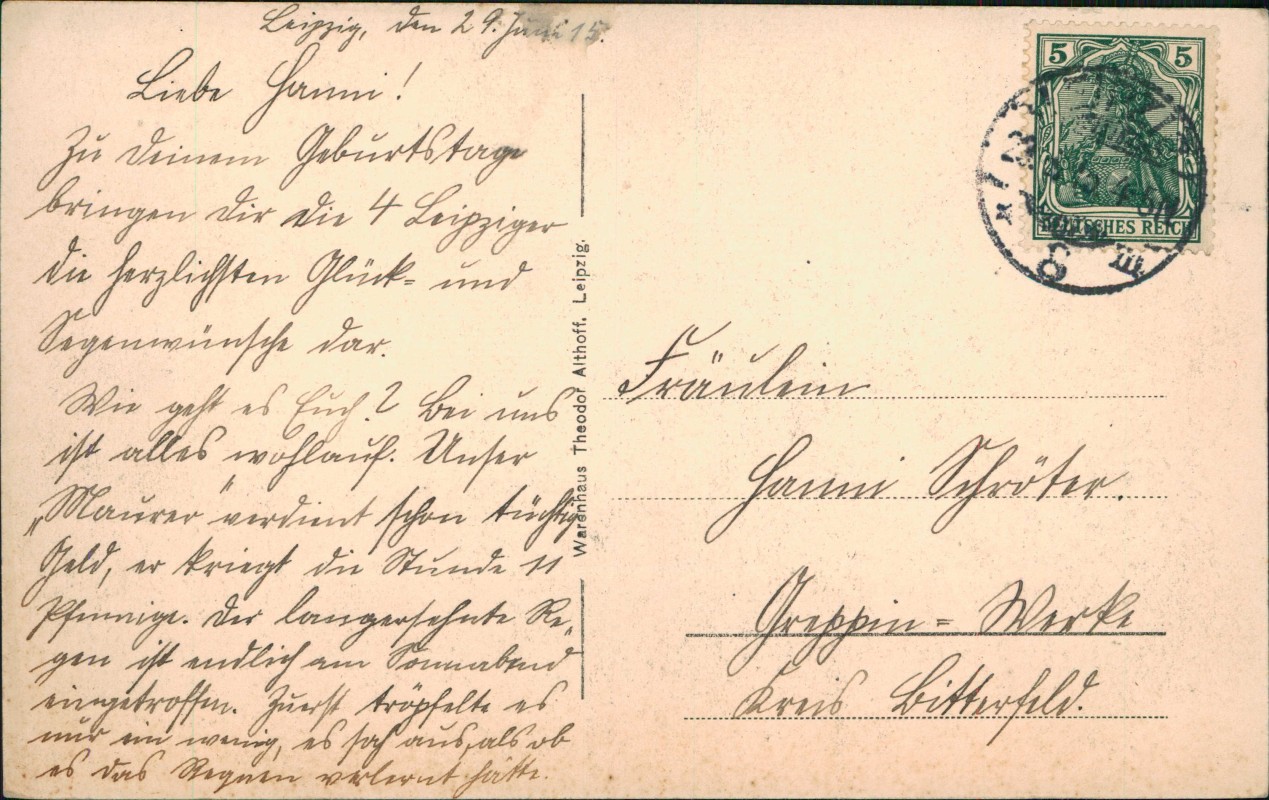 Leipzig, den 29. Juni 15.
Liebe Hanni!
Zu Deinem Geburtstage
bringen Dir die 4 Leipziger
die herzlichsten Glück- und
Segenwünsche dar.
Wie geht es Euch? Bei uns
ist alles wohlauf. Unser
„Maurer" verdient schon tüchtig
Geld, er kriegt die Stunde 11
Pfennige. Der langersehnte Re-
gen ist endlich am Sonnabend
eingetroffen. Zuerst tröpfelte es
nur ein wenig, es sah aus, als ob
es das Regnen verlernt hätte.
Warenhaus Theodor Althoff, Leipzig.
5 5
DEUTSCHES REICH
Fräulein
Hanni Schröter.
Greppin-Werke
Kreis Bitterfeld.